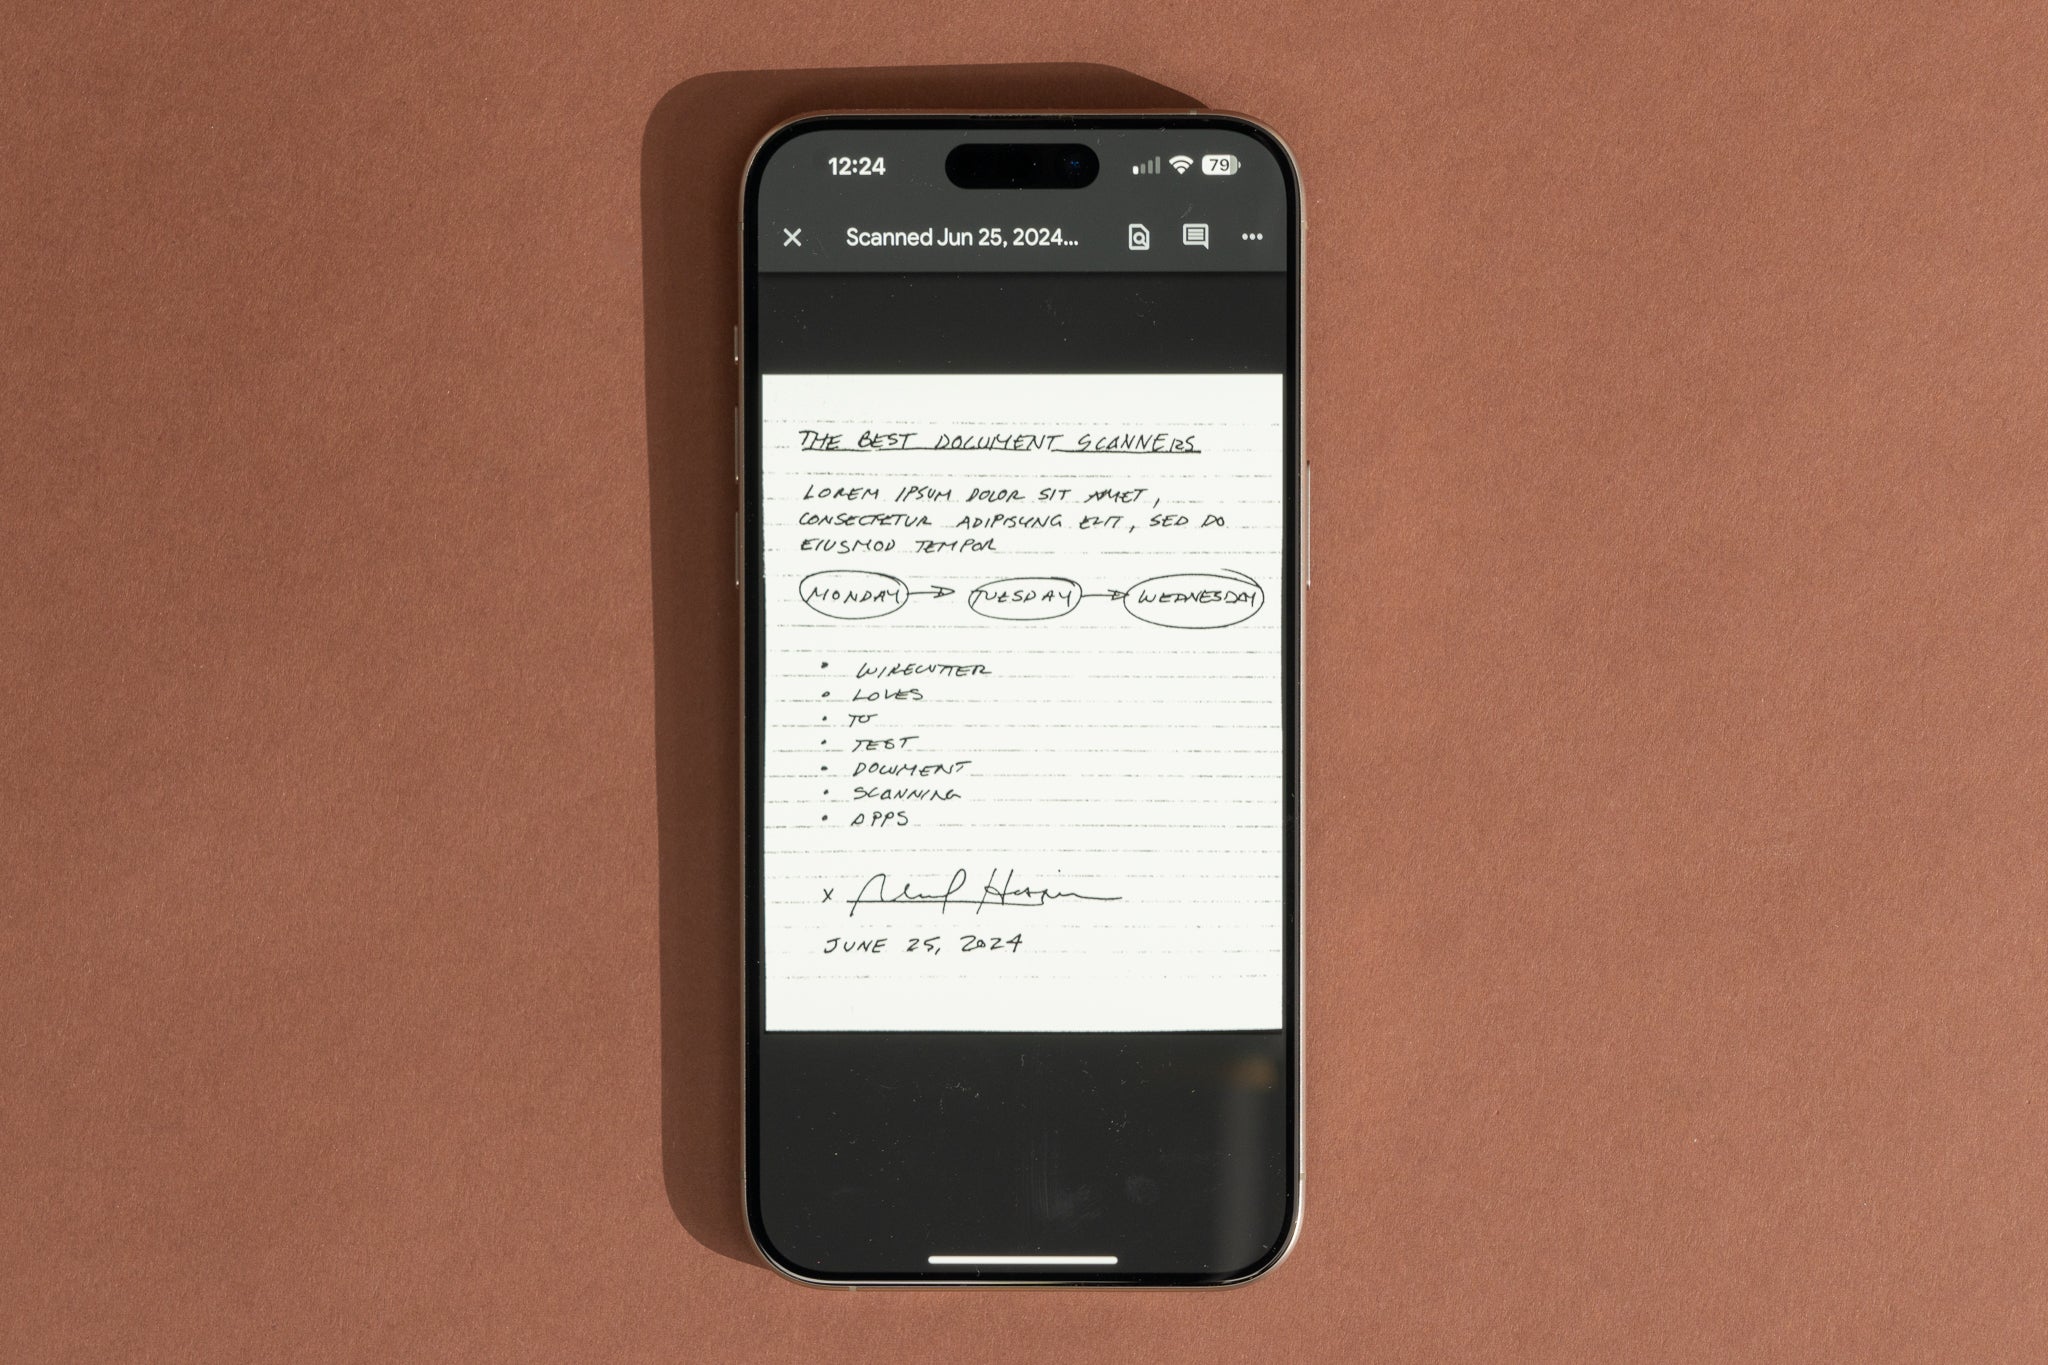 12:24 79
Scanned Jun 25, 2024...
THE BEST DOCUMENT SCANNERS
LOREM IPSUM DOLOR SIT AMET,
CONSECTETUR ADIPISCING ELIT, SED DO
EIUSMOD TEMPOR
MONDAY → TUESDAY → WEDNESDAY
• WIRECUTTER
• LOVES
• TO
• TEST
• DOCUMENT
• SCANNING
• APPS
x
JUNE 25, 2024